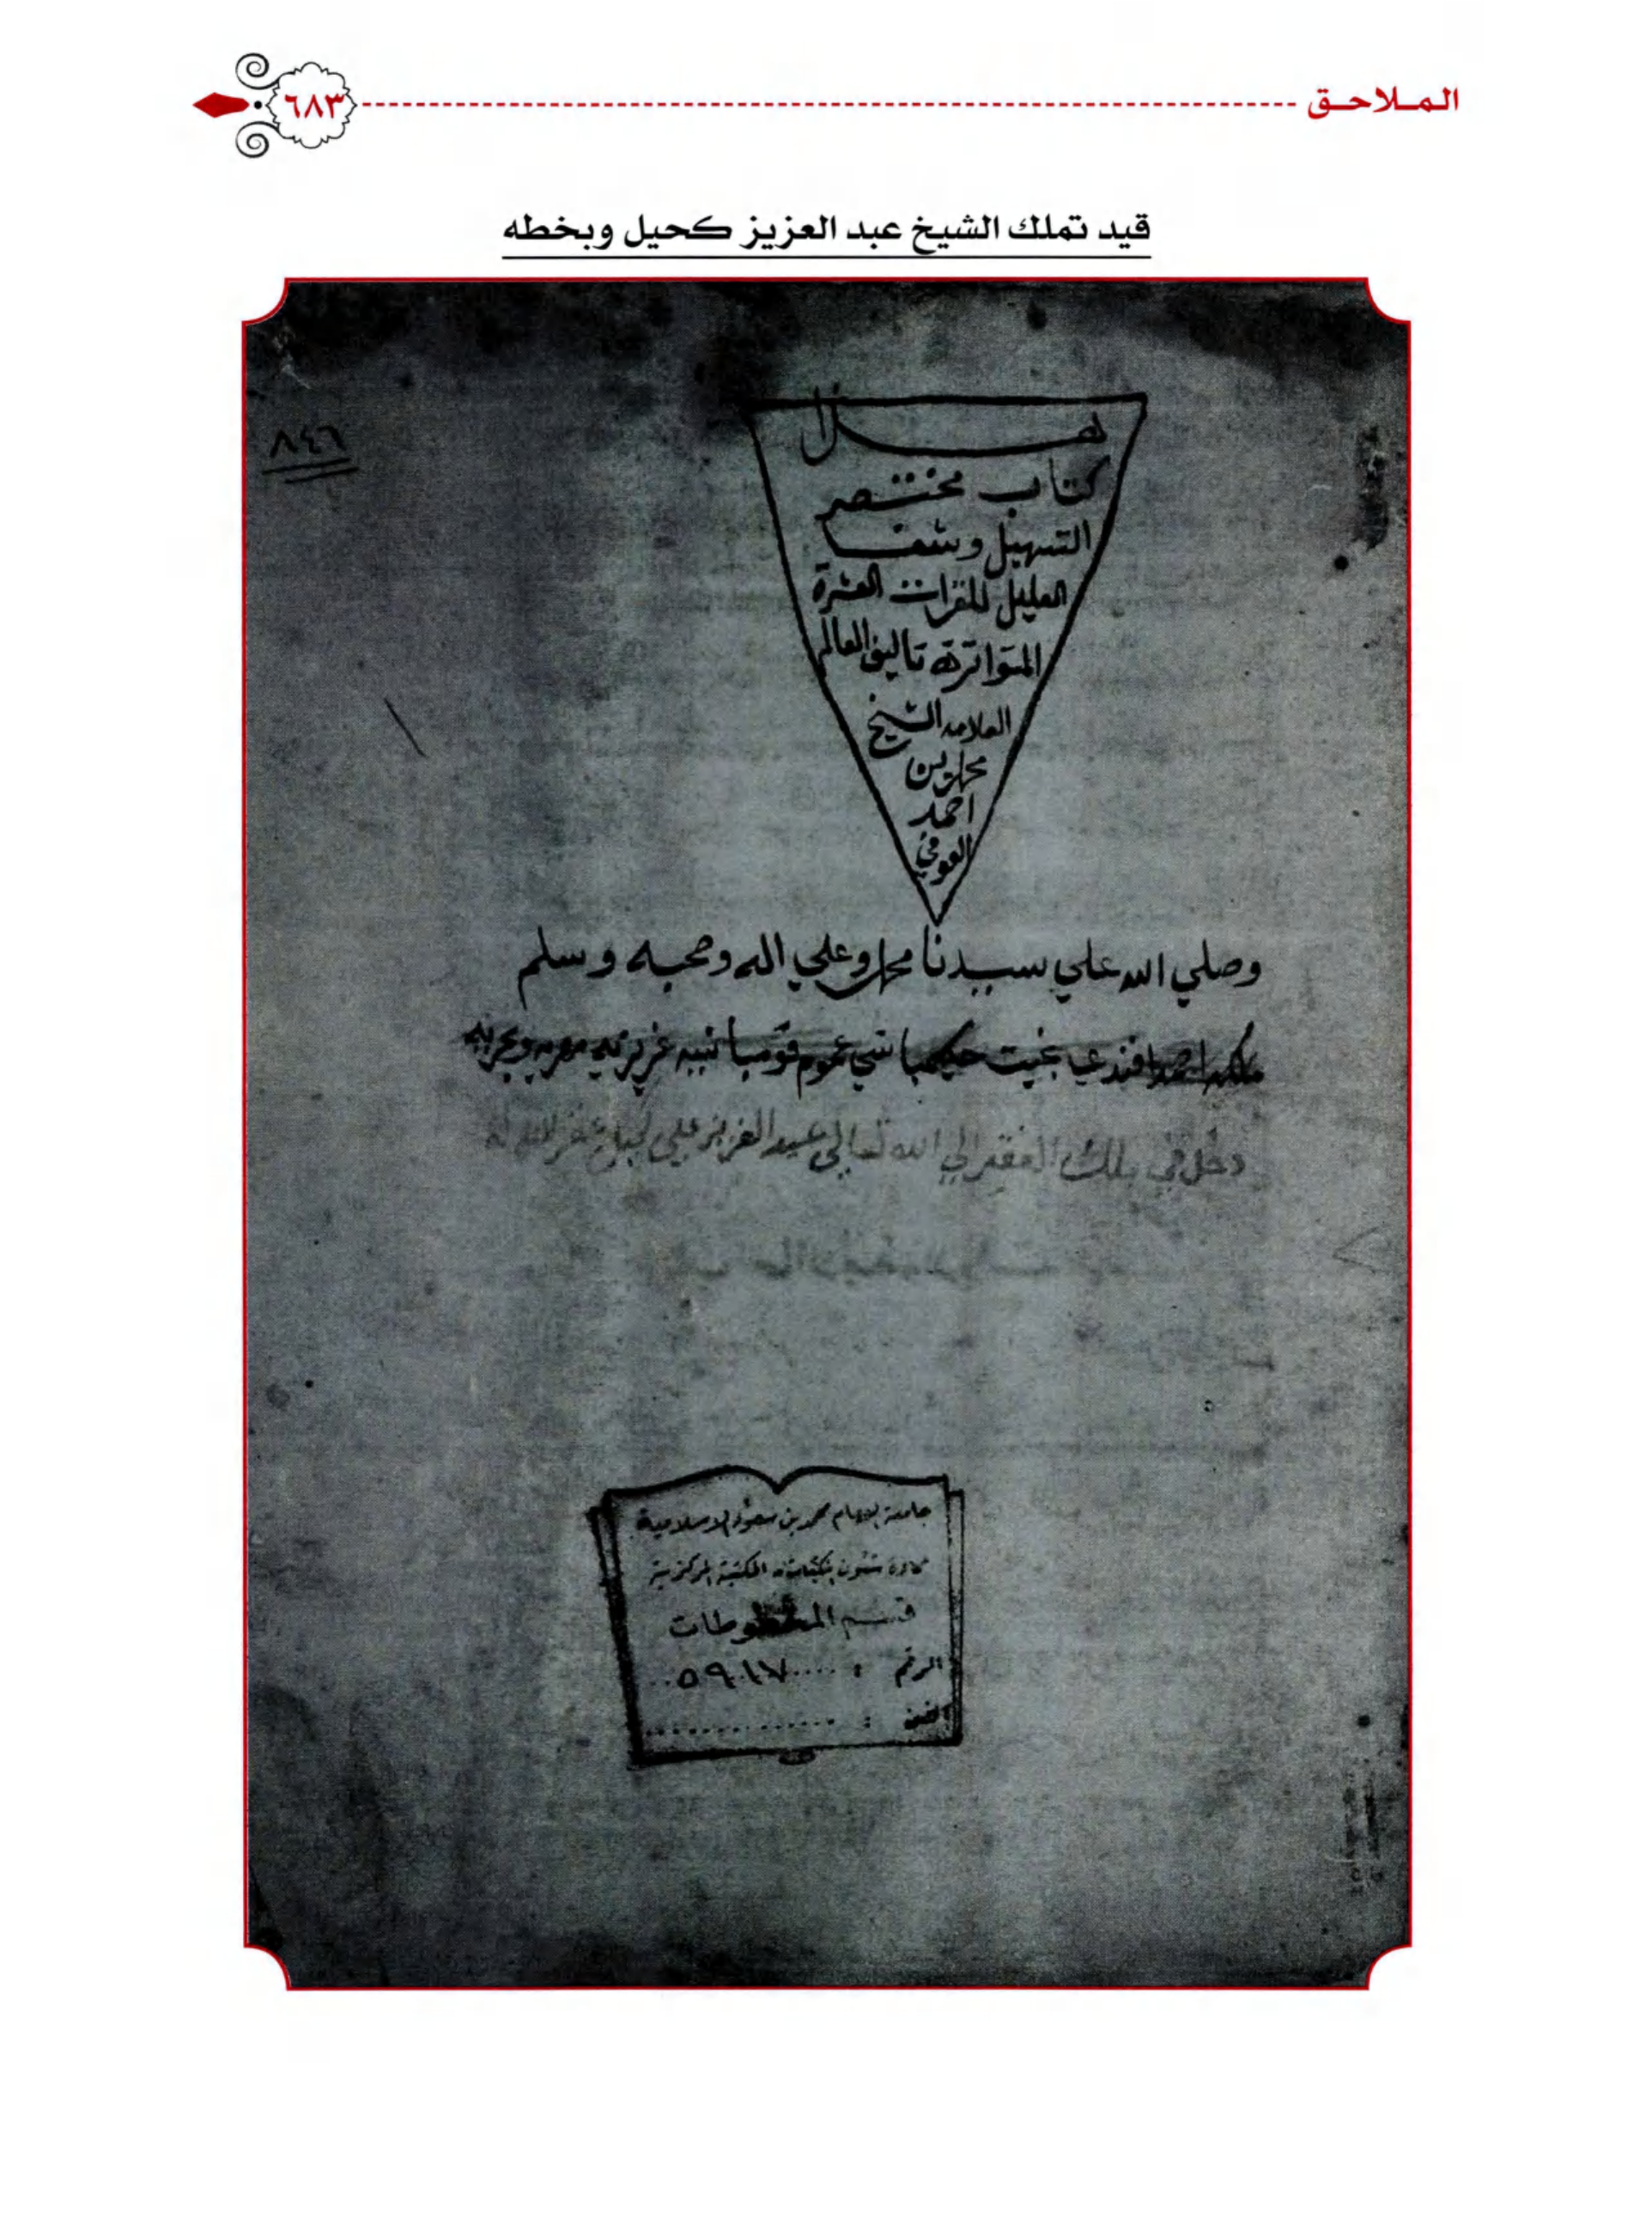 الملاحق
٦٨٣
قيد تملك الشيخ عبد العزيز كحيل وبخطه
٨٤٦
هذا
كتاب مختصر
التسهيل وشفا
العليل للقرات العشرة
المتواترة تاليف العالم
العلامه الشيخ
محمد بن
احمد
العوفي
وصلي الله علي سيدنا محمد وعلي اله وصحبه وسلم
ملكه احمد افندي بخيت حكيمباشي عموم قومبانيه عزيزيه مصريه وبحريه
دخل في ملك الفقير الي الله تعالي عبد العزيز علي كحيل غفر الله له
جامعة الإمام محمد بن سعود الإسلامية
عمادة شئون المكتبات المكتبة المركزية
قسم المخطوطات
الرقم : ٥٩٠١٧
الفن :